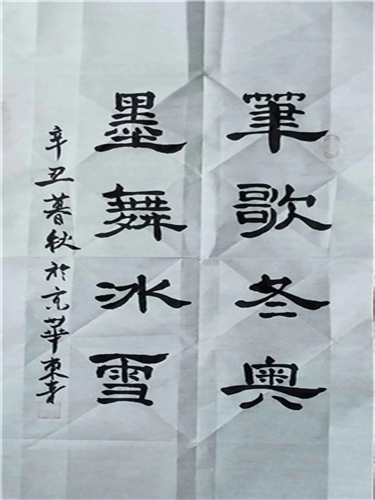 筆歌冬奥
墨舞冰雪
辛丑暮秋於京華東青